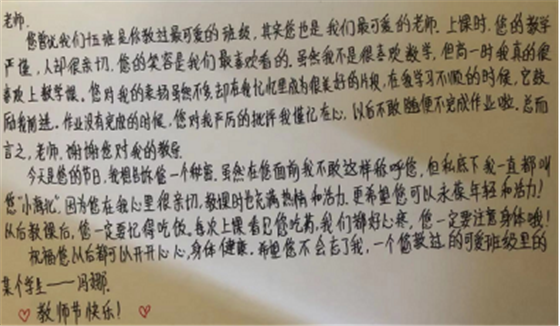 老师.
您曾说我们12班是你教过最可爱的班级,其实您也是我们最可爱的老师.上课时,您的教学
严谨,人却很亲切.您的笑容是我们最喜欢看的.虽然我不是很喜欢数学,但有一时我真的很
喜欢上数学课。您对我的表扬虽然不多却在我记忆里成为很美好的片段,在我学习不顺的时候,它鼓
励我前进.作业没有完成的时候,您对我严厉的批评我谨记在心,以后不敢随便不完成作业啦.总而
言之,老师,谢谢您对我的教导
今天是您的节日,我想告诉您一个秘密.虽然在您面前我不敢这样称呼您,但私底下我一直都叫
您"小 ".因为您在我心里很亲切,教课时也充满热情和活力.更希望您可以永葆年轻和活力!
以后教课后,您一定要记得吃饭.每次上课看见您吃药,我们都好心疼,您一定要注意身体哦!
祝福您以后都可以开开心心,身体健康.希望您不会忘了我,一个您教过的可爱班级里的
某个学生——冯娜.
♡ 教师节快乐! ♡